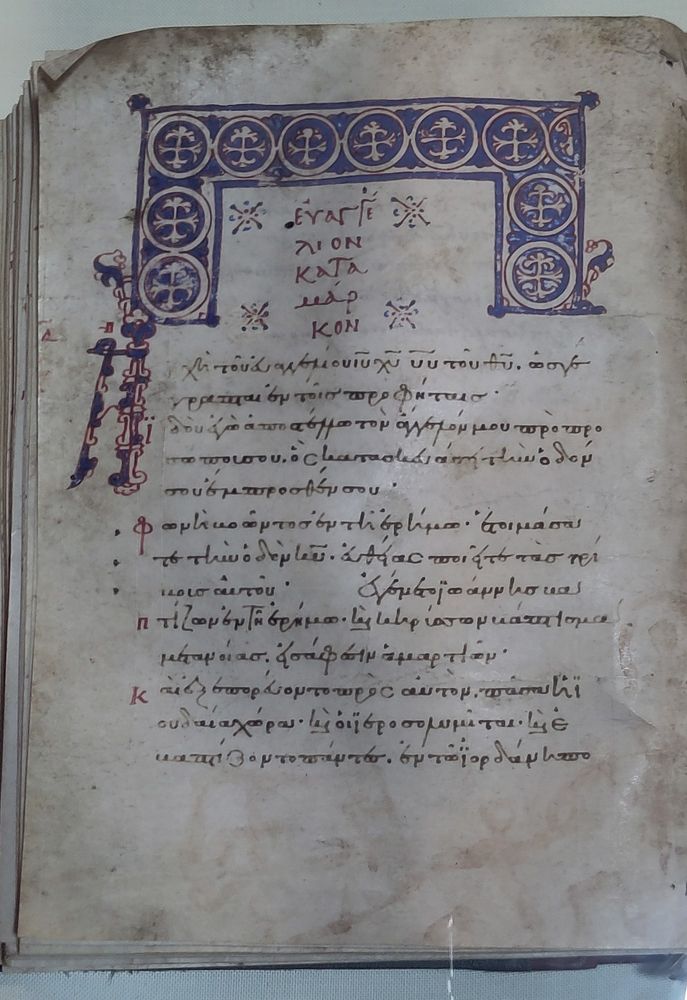 ΕΥΑΓΓΕ
ΛΙΟΝ
ΚΑΤΑ
ΜΑΡ
ΚΟΝ
Ἀρχὴ τοῦ εὐαγγελίου ιυ χυ υυ του θυ. ὡς γέ
γραπται ἐν τοῖς προφήταις·
ἰδοὺ ἐγὼ ἀποστέλλω τὸν ἄγγελόν μου πρὸ προ
σώπου σου. ὃς κατασκευάσει τὴν ὁδόν
σου ἔμπροσθέν σου·
Φωνὴ βοῶντος ἐν τῇ ἐρήμω· ἑτοιμάσα
τε τὴν ὁδὸν κυ. εὐθείας ποιεῖτε τὰς τρί
βους αὐτοῦ· Ἐγένετο ἰωάννης βα
πτίζων ἐν τῇ ἐρήμω· καὶ κηρύσσων βάπτισμα
μετανοίας. εἰς ἄφεσιν ἁμαρτιῶν·
Καὶ ἐξεπορεύοντο πρὸς αὐτὸν. πᾶσα ἡ ἰ
ουδαία χώρα· καὶ οἱ ἱεροσολυμῖται· καὶ ἐ
βαπτίζοντο πάντες. ἐν τῶ ἰορδάνη πο